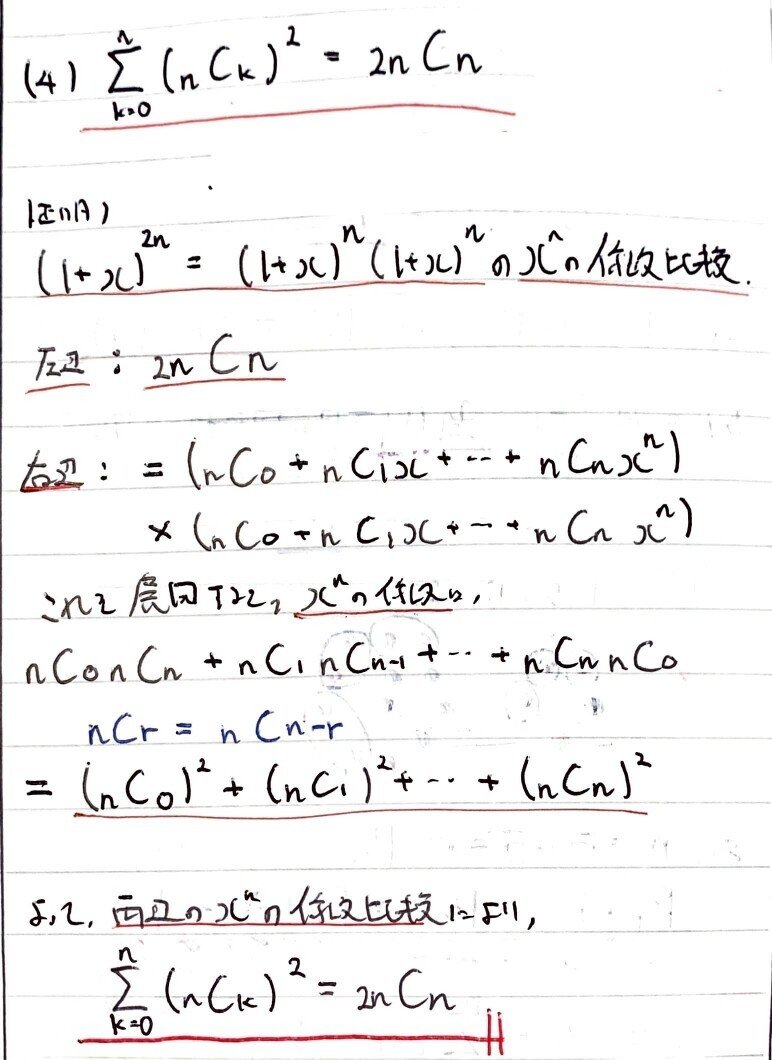 (4) \sum_{k=0}^{n} (nCk)^2 = 2nCn
証明)
(1+x)^{2n} = (1+x)^n (1+x)^n の x^n の係数比較.
左辺 : 2nCn
右辺 : = (nC0 + nC1x + … + nCnx^n)
× (nC0 + nC1x + … + nCnx^n)
これを展開すると, x^n の係数は,
nC0nCn + nC1nCn-1 + … + nCnnC0
nCr = nCn-r
= (nC0)^2 + (nC1)^2 + … + (nCn)^2
よって, 両辺の x^n の係数比較により,
\sum_{k=0}^{n} (nCk)^2 = 2nCn